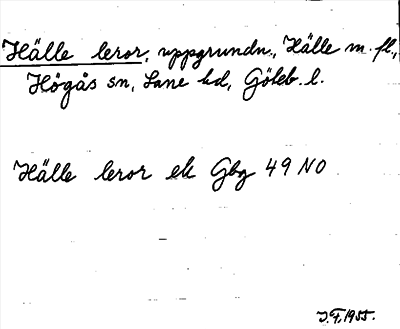 Hälle leror, uppgrundn., Hälle m. fl.,
Högås sn, Lane hd, Göteb. l.
Hälle leror ek Gbg 49 NO
J.F. 1955.